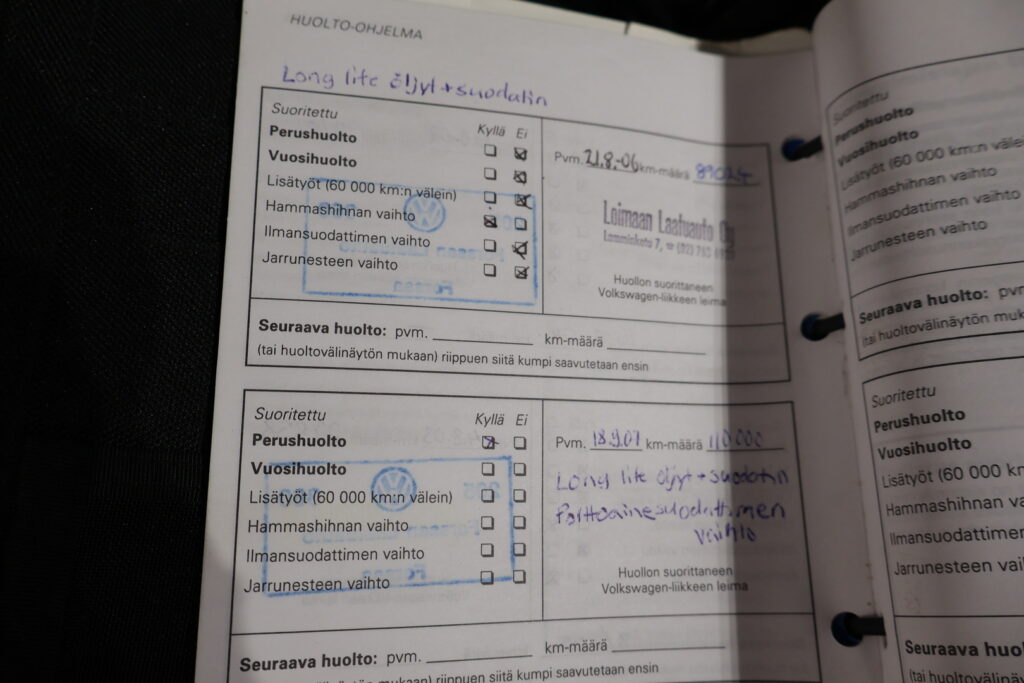 HUOLTO-OHJELMA
Long life öljyt + suodatin
Suoritettu
Kyllä Ei
Perushuolto
Vuosihuolto
Lisätyöt (60 000 km:n välein)
Hammashihnan vaihto
Ilmansuodattimen vaihto
Jarrunesteen vaihto
Pvm. 21.8.-06 km-määrä
Loimaan Laatuauto Oy
Lamminkatu 7,
Huollon suorittaneen
Volkswagen-liikkeen leima
Seuraava huolto: pvm. km-määrä
(tai huoltovälinäytön mukaan) riippuen siitä kumpi saavutetaan ensin
Suoritettu
Kyllä Ei
Perushuolto
Vuosihuolto
Lisätyöt (60 000 km:n välein)
Hammashihnan vaihto
Ilmansuodattimen vaihto
Jarrunesteen vaihto
Pvm. 18.9.07 km-määrä 110 000
Long life öljyt + suodatin
Polttoainesuodattimen
vaihto
Huollon suorittaneen
Volkswagen-liikkeen leima
Seuraava huolto: pvm. km-määrä
huoltovälinäytön mukaan) riippuen siitä kumpi saavutetaan ensin
Suoritettu
Perushuolto
Vuosihuolto
Lisätyöt (60 000 km:n välein
Hammashihnan vaihto
Ilmansuodattimen vaihto
Jarrunesteen vaihto
Seuraava huolto: pvm
(tai huoltovälinäytön muk
Suoritettu
Perushuolto
Vuosihuolto
Lisätyöt (60 000 km
Hammashihnan va
Ilmansuodattimen
Jarrunesteen vai
Seuraava huol
(tai huoltovälinäy